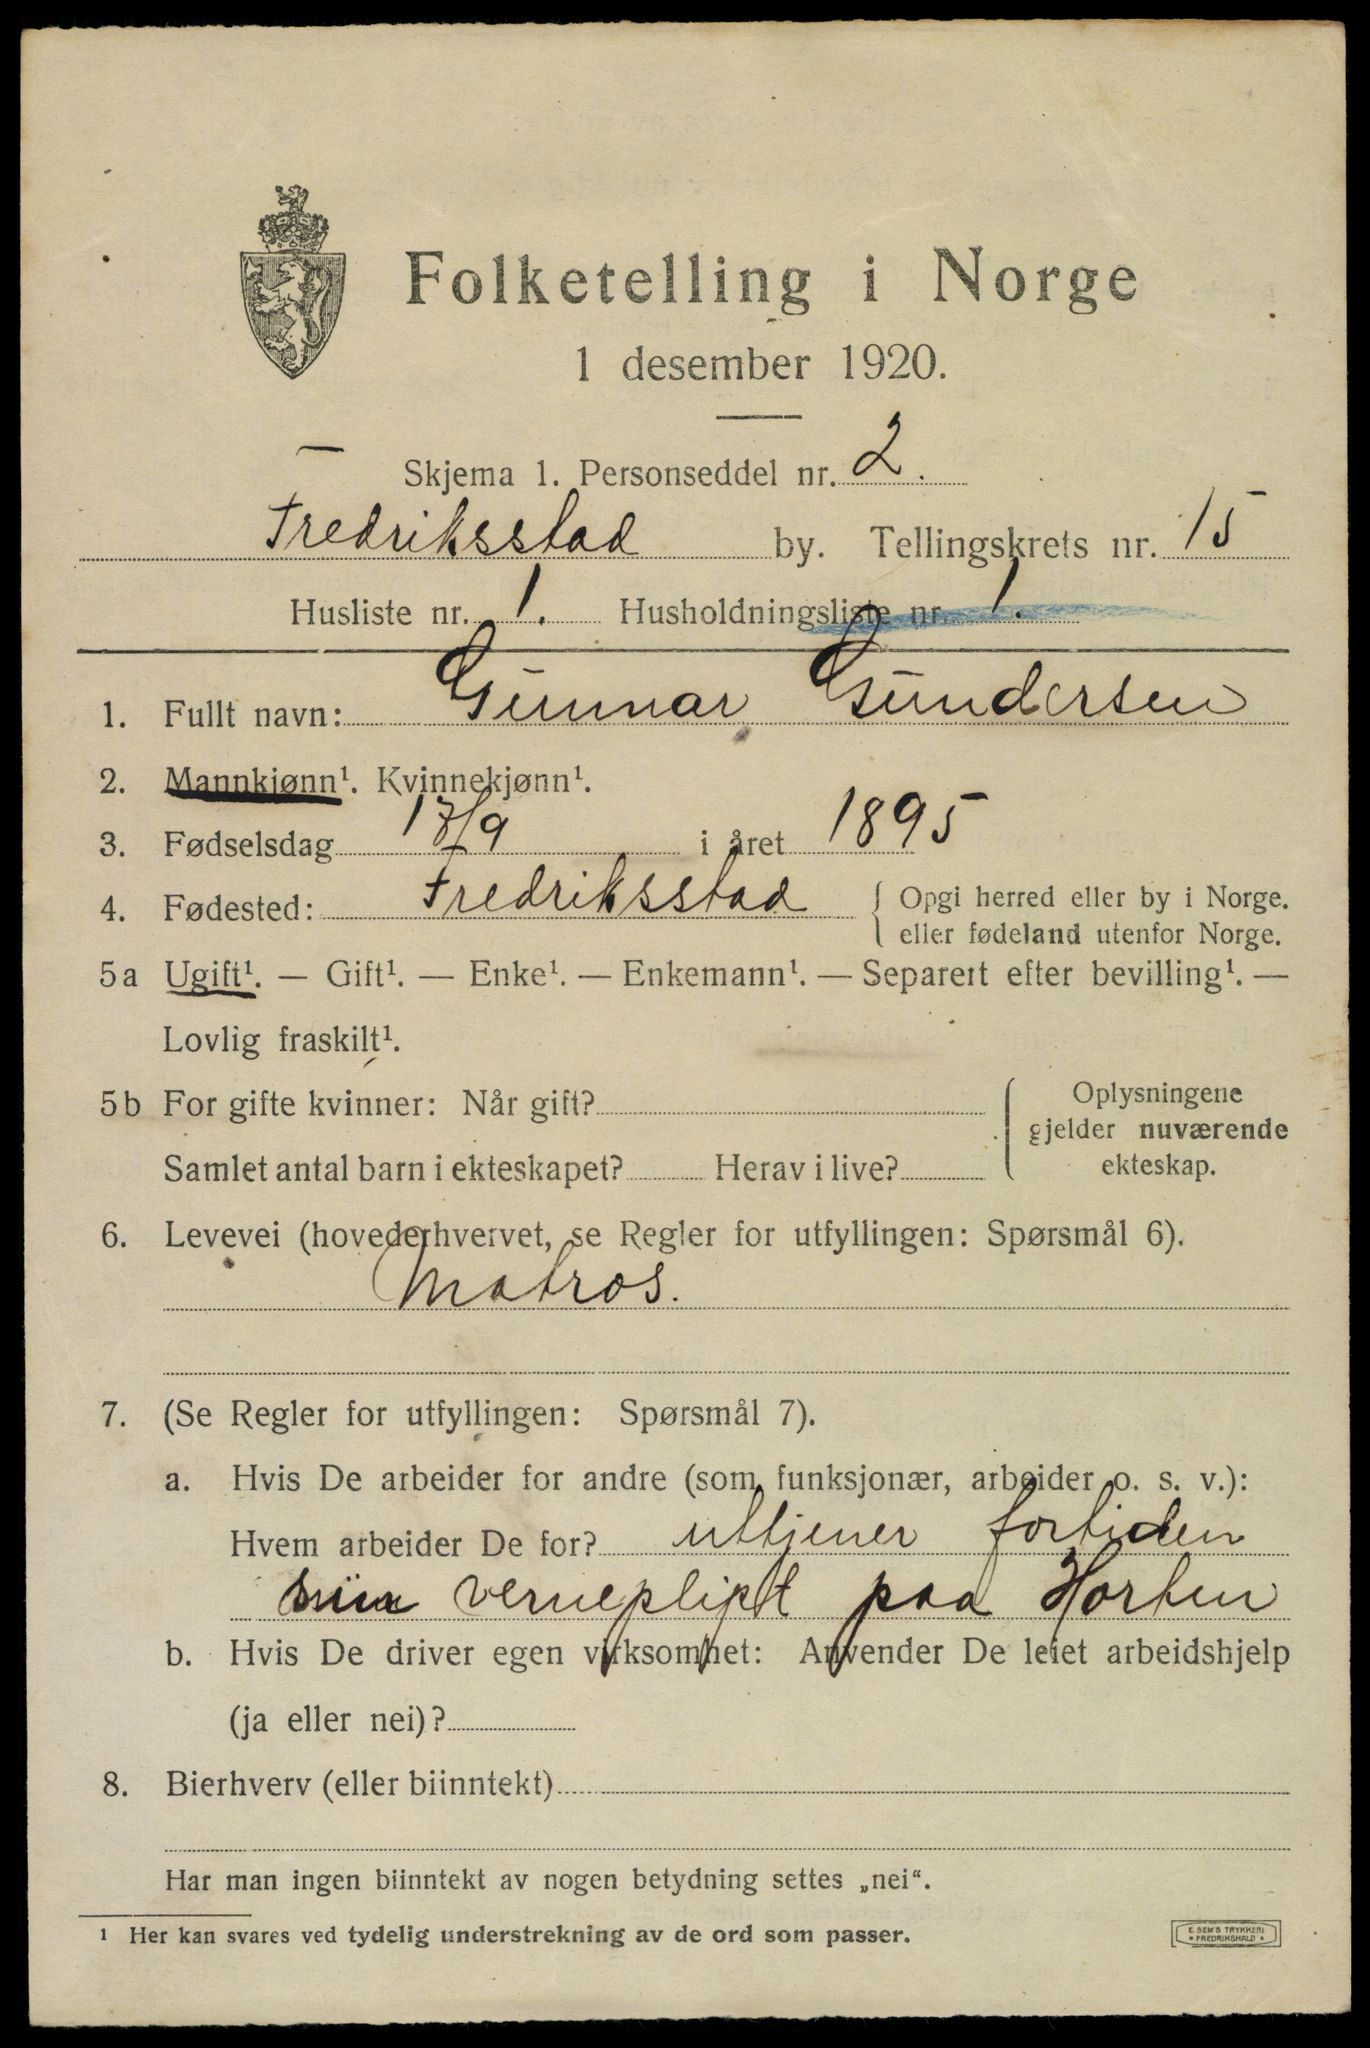 Folketelling i Norge
1 desember 1920.
Skjema 1. Personseddel nr. 2.
Fredriksstad by. Tellingskrets nr. 15
Husliste nr. 1. Husholdningsliste nr. 1.
1. Fullt navn: Gunnar Gundersen
2. Mannkjønn¹. Kvinnekjønn¹.
3. Fødselsdag 17/9 i året 1895
4. Fødested: Fredriksstad { Opgi herred eller by i Norge.
eller fødeland utenfor Norge.
5a Ugift¹. — Gift¹. — Enke¹. — Enkemann¹. — Separert efter bevilling¹. —
Lovlig fraskilt¹.
5b For gifte kvinner: Når gift?
Samlet antal barn i ekteskapet? Herav i live?
Oplysningene
gjelder nuværende
ekteskap.
6. Levevei (hovederhvervet, se Regler for utfyllingen: Spørsmål 6).
Matros.
7. (Se Regler for utfyllingen: Spørsmål 7).
a. Hvis De arbeider for andre (som funksjonær, arbeider o. s. v.):
Hvem arbeider De for? uttjener fortiden
sin vernepligt paa Horten
b. Hvis De driver egen virksomhet: Anvender De leiet arbeidshjelp
(ja eller nei)?
8. Bierhverv (eller biinntekt)
Har man ingen biinntekt av nogen betydning settes „nei“.
¹ Her kan svares ved tydelig understrekning av de ord som passer.
E. SEM'S TRYKKERI
• FREDRIKSHALD •